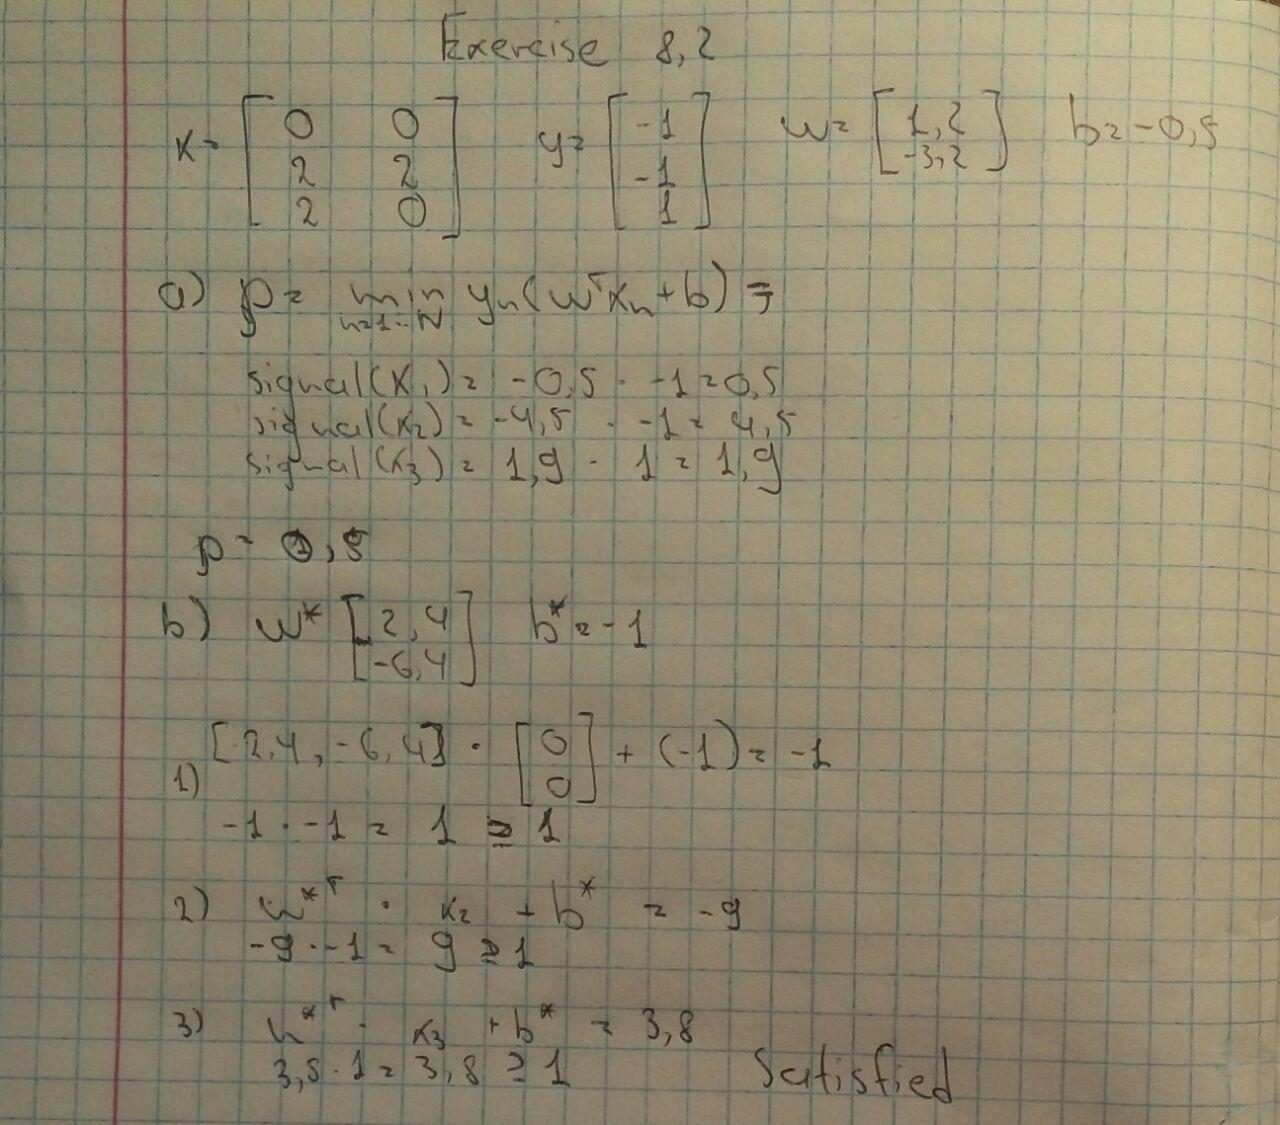 Exercise 8,2
x = [0 0; 2 2; 2 0] y = [-1; -1; 1] w = [1,2; -3,2] b = -0,5
a) ρ = min n=1...N yn(wᵀxn + b) =
signal(x1) = -0,5 · -1 = 0,5
signal(x2) = -4,5 · -1 = 4,5
signal(x3) = 1,9 · 1 = 1,9
ρ = 0,5
b) w* [2,4; -6,4] b* = -1
1) [2,4, -6,4] · [0; 0] + (-1) = -1
-1 · -1 = 1 ≥ 1
2) w*ᵀ · x2 + b* = -9
-9 · -1 = 9 ≥ 1
3) w*ᵀ · x3 + b* = 3,8
3,8 · 1 = 3,8 ≥ 1 Satisfied